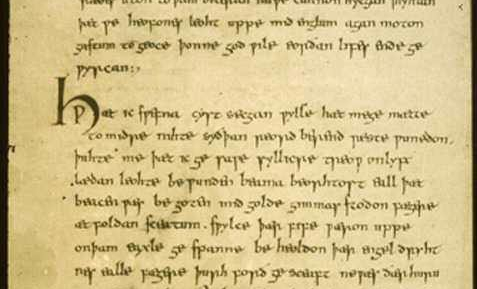 þæt ƿe heofones leoht uppe mid englum agan moton
gastum to geoce þonne god ƿile eorðan lifes ende ge
ƿyrcan:,
Hƿæt ic sƿefna cyst secgan ƿylle hæt mege mætte
to midre nihte syðþan reord berend reste ƿunedon.
þuhte me þæt ic ge saƿe syllicre treoƿ onlyft
lædan leohte be ƿunden beama beorhtost eall þæt
beacen ƿæs be goten mid golde gimmas stodon fægere
æt foldan sceatum. sƿylce þær fife ƿæron uppe
onþam eaxle ge spanne be heoldon þær engel dryht
nes ealle fægere þurh forð ge sceaft ne ƿæs ðær huru